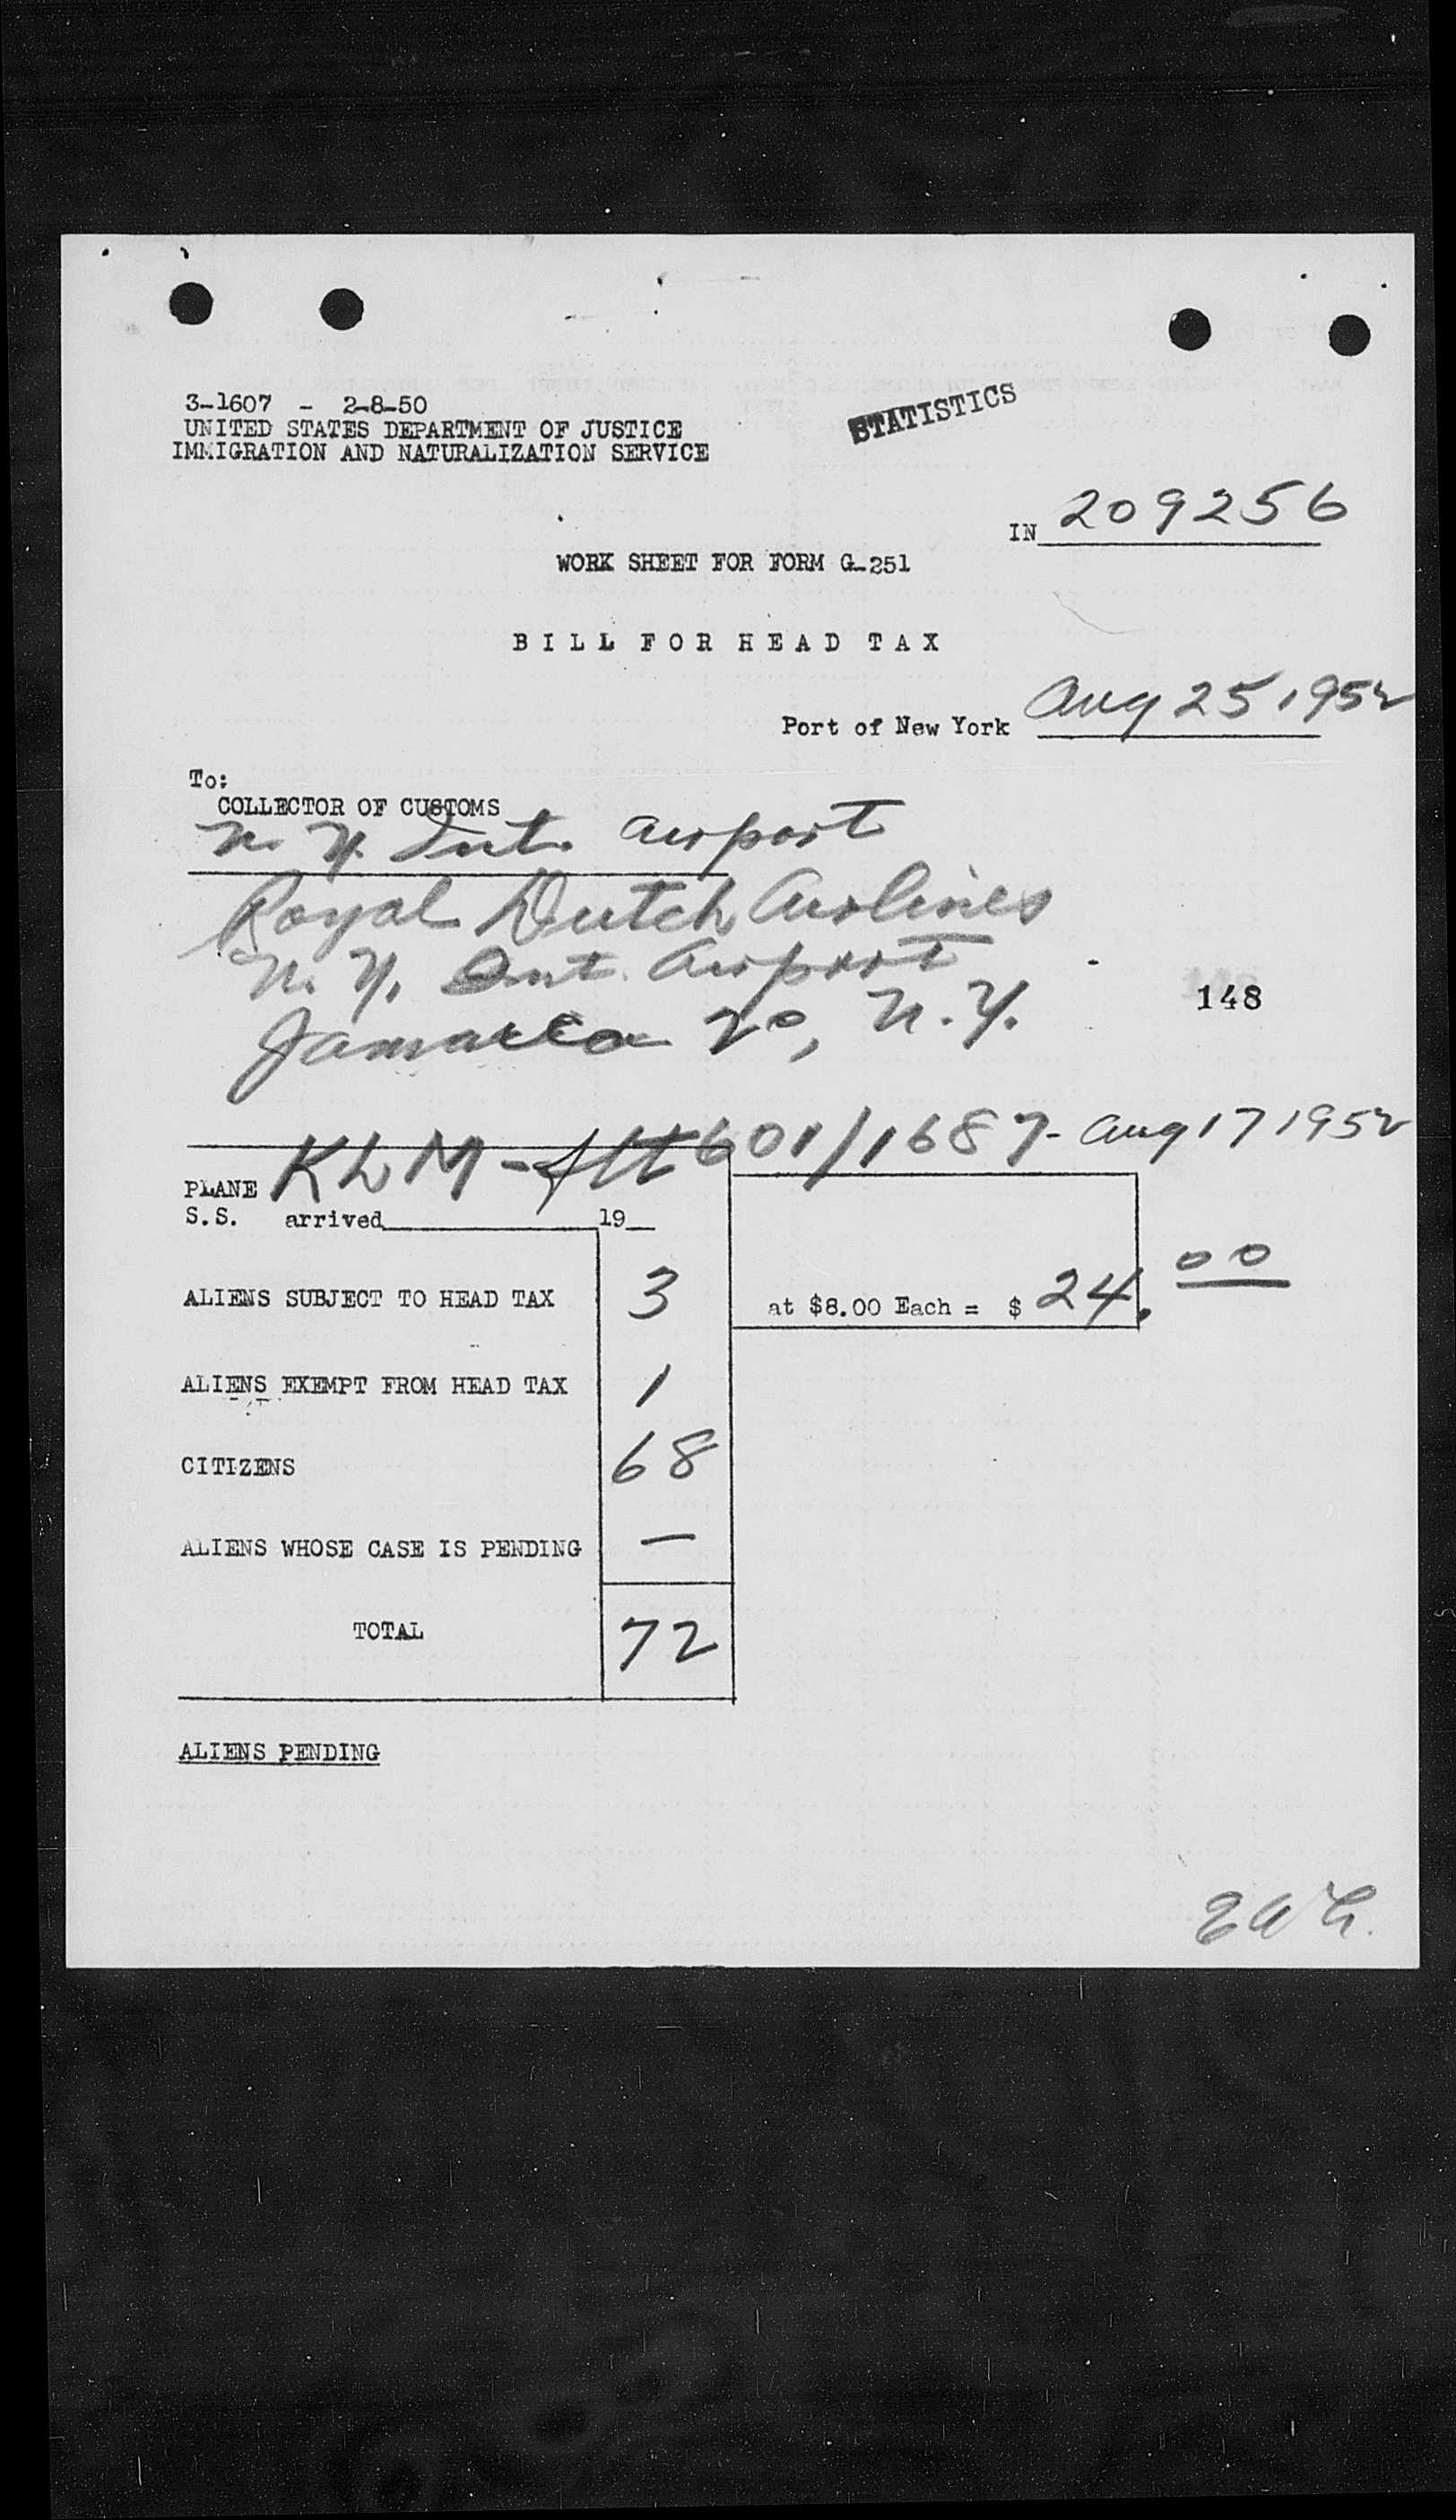 3-1607 - 2-8-50
UNITED STATES DEPARTMENT OF JUSTICE
IMMIGRATION AND NATURALIZATION SERVICE
STATISTICS
IN 209256
WORK SHEET FOR FORM G-251
BILL FOR HEAD TAX
Port of New York Aug 25, 1952
To:
COLLECTOR OF CUSTOMS
N. Y. Int. Airport
Royal Dutch Airlines
N. Y. Int. Airport
148
Jamaica 20, N.Y.
PLANE KLM - flt 601/1687 - Aug 17 1952
S.S. arrived 19
ALIENS SUBJECT TO HEAD TAX 3 at $8.00 Each = $ 24.00
ALIENS EXEMPT FROM HEAD TAX 1
CITIZENS 68
ALIENS WHOSE CASE IS PENDING —
TOTAL 72
ALIENS PENDING